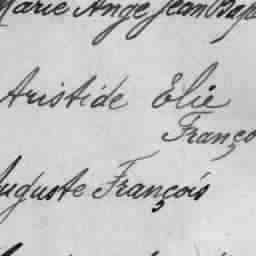 Marie Ange Jean Bap
Aristide Élie
Franço
Auguste François